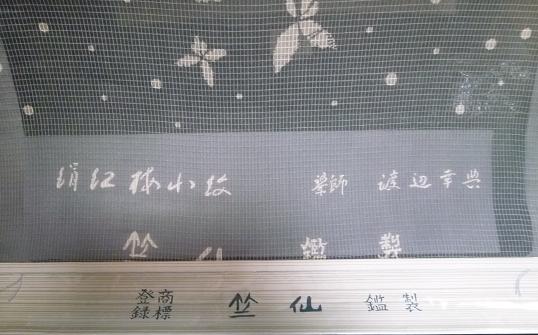 絹紅梅小紋 染師 渡辺幸典
竺仙 鑑製
登録商標 竺仙 鑑製